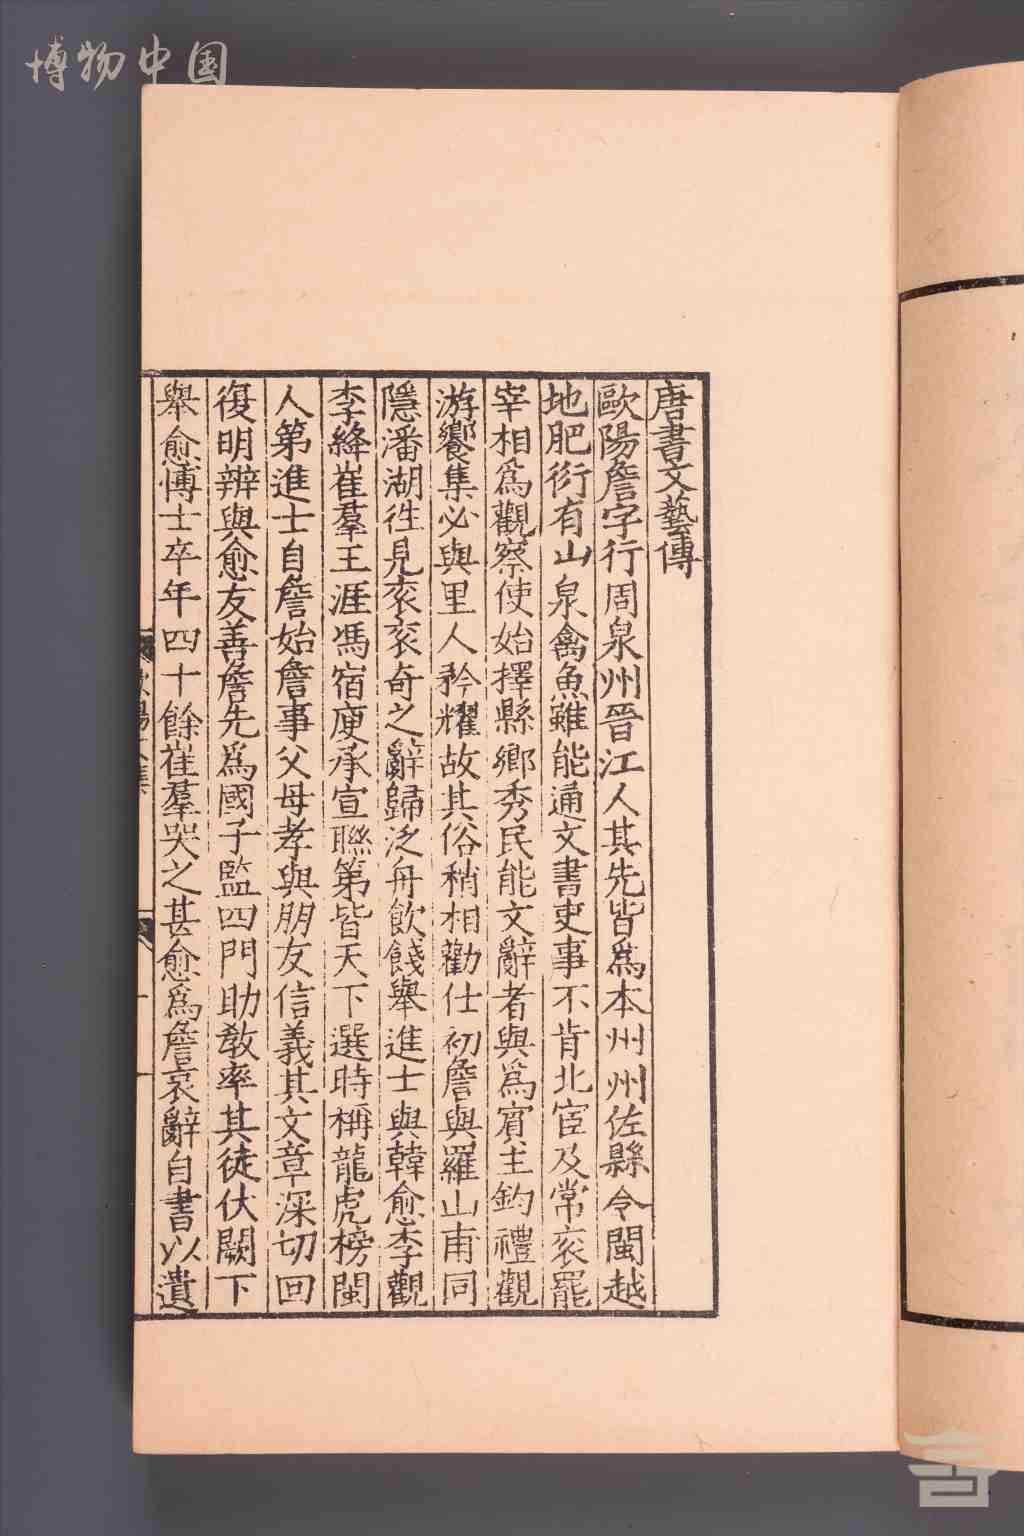 博物中国
唐書文藝傳
歐陽詹字行周泉州晉江人其先皆爲本州州佐縣令閩越
地肥衍有山泉禽魚雖能通文書吏事不肯北宦及常衮罷
宰相爲觀察使始擇縣鄉秀民能文辭者與爲賓主鈞禮觀
游饗集必與里人矜耀故其俗稍相勸仕初詹與羅山甫同
隱潘湖徃見衮衮奇之辭歸泛舟飲餞舉進士與韓愈李觀
李絳崔羣王涯馮宿庾承宣聯第皆天下選時稱龍虎榜閩
人第進士自詹始詹事父母孝與朋友信義其文章深切回
復明辨與愈友善詹先爲國子監四門助教率其徒伏闕下
舉愈愽士卒年四十餘崔羣哭之甚愈爲詹哀辭自書以遺